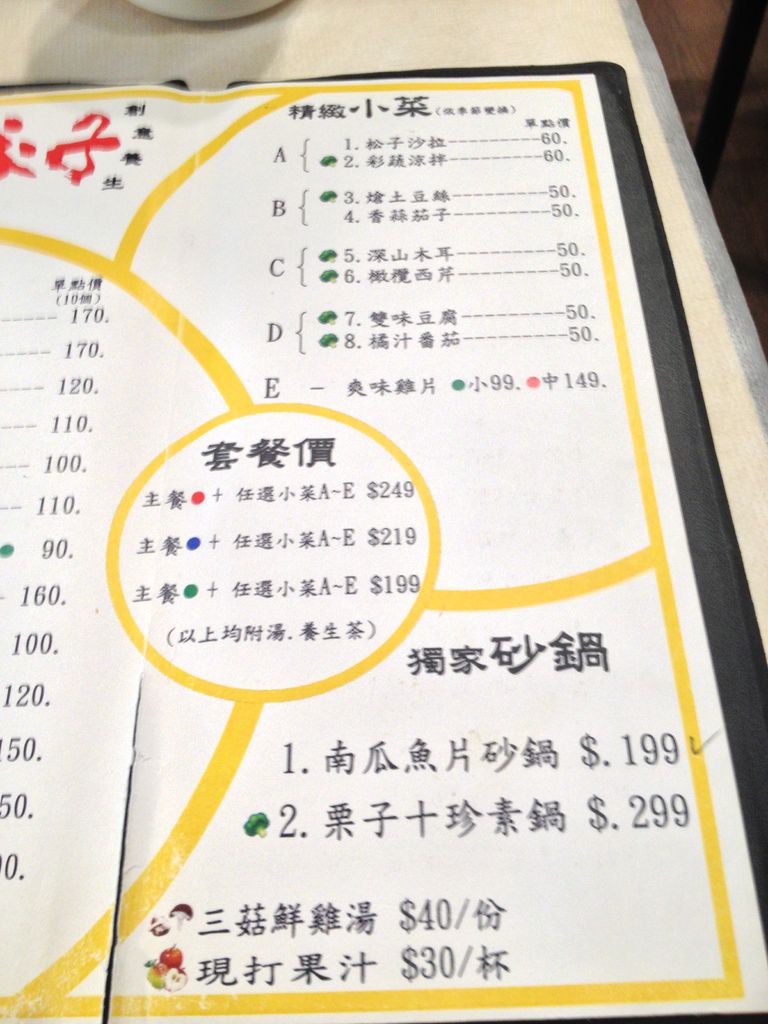 子
創意養生
精緻小菜(依季節變換)
單點價
A
1. 松子沙拉----------60.
2. 彩蔬涼拌----------60.
B
3. 燴土豆絲----------50.
4. 香蒜茄子----------50.
C
5. 深山木耳----------50.
6. 橄欖西芹----------50.
D
7. 雙味豆腐----------50.
8. 橘汁番茄----------50.
E - 爽味雞片 小99. 中149.
單點價
(10個)
170.
170.
120.
110.
100.
110.
90.
160.
100.
120.
150.
50.
0.
套餐價
主餐 + 任選小菜A~E $249
主餐 + 任選小菜A~E $219
主餐 + 任選小菜A~E $199
(以上均附湯.養生茶)
獨家砂鍋
1. 南瓜魚片砂鍋 $.199
2. 栗子十珍素鍋 $.299
三菇鮮雞湯 $40/份
現打果汁 $30/杯